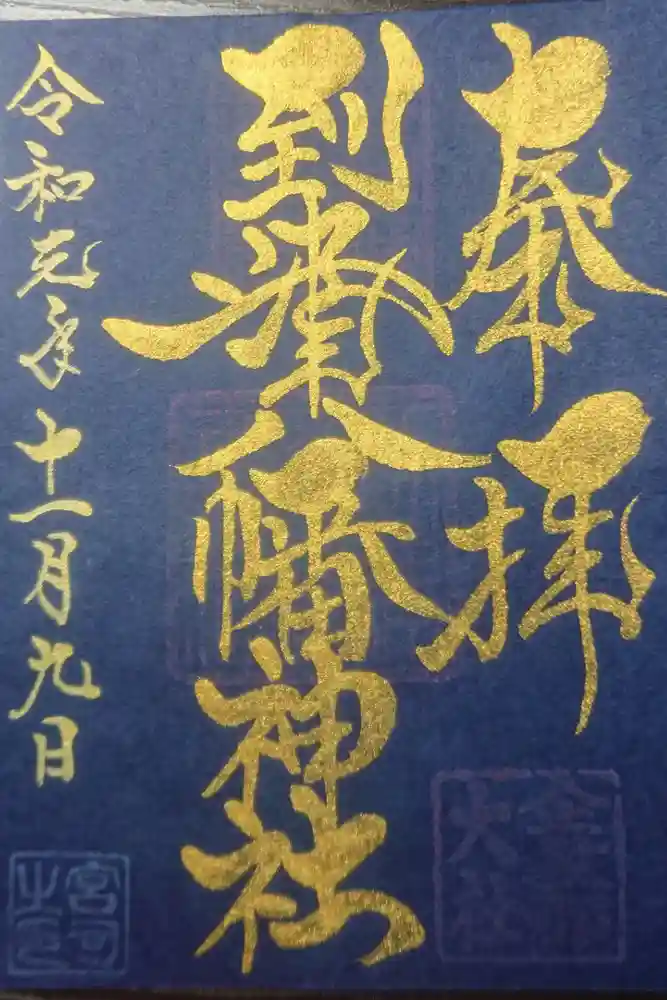 奉拝
到津八幡神社
令和元年十一月九日
宮司之印